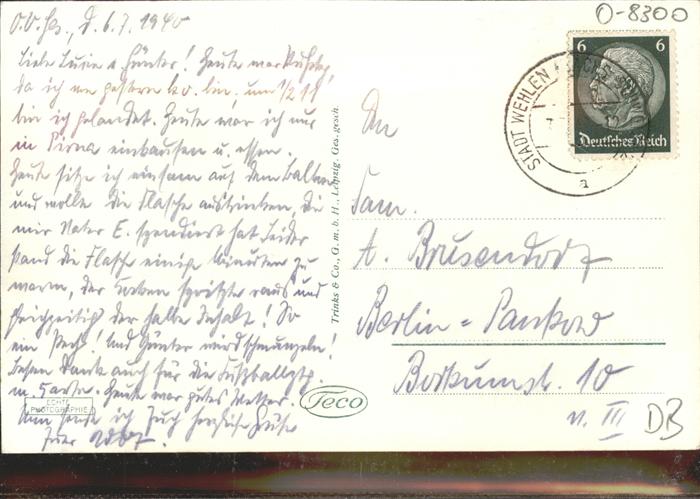 O-8300
d. 6.7.1940
Liebe Lucie u. Günter! Heute war Ruhetag,
da ich gestern um 1/2 11
bin ich gelandet. Heute war ich nur
in Pirna einkaufen u. essen.
Heute sitze ich einsam auf dem Balkon
und wollte die Flasche austrinken, die
mir Vater E. spendiert hat. Leider
stand die Flasche einige Minuten zu
warm, der Korken spritzte raus und
gleichzeitig der halbe Inhalt! So
ein Pech! Und Günter wird schmunzeln!
Besten Dank auch für die Fußballztg.
m. Heute war gutes Wetter.
Nun sende ich Euch herzliche Grüße
Euer
ECHTE PHOTOGRAPHIE
Trinks & Co., G. m. b. H., Leipzig. Ges. gesch.
Teco
6 6
Deutsches Reich
STADT WEHLEN
a
An
Fam.
A. Brusendorf
Berlin = Pankow
Borkumstr. 10
v. III
DB